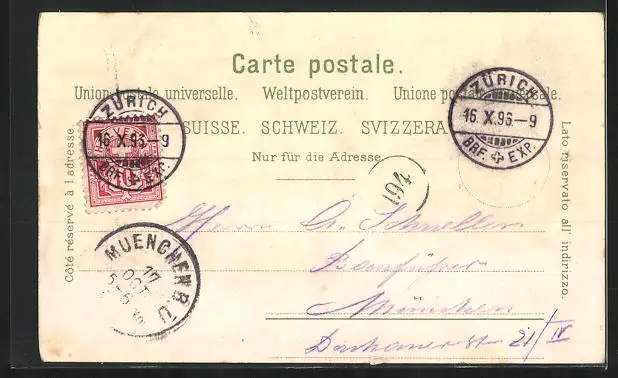 Carte postale.
Union postale universelle. Weltpostverein. Unione postale universale.
SUISSE. SCHWEIZ. SVIZZERA.
Nur für die Adresse.
Côté réservé à l'adresse.
Lato riservato all' indirizzo.
ZÜRICH
16 X.96.-9
BRF. EXP.
ZÜRICH
16 X.96.-9
BRF. EXP.
194
MUENCHEN B.
17
OCT
5-6
Herrn G. Schneller
München
Dachauerstr 21/IV